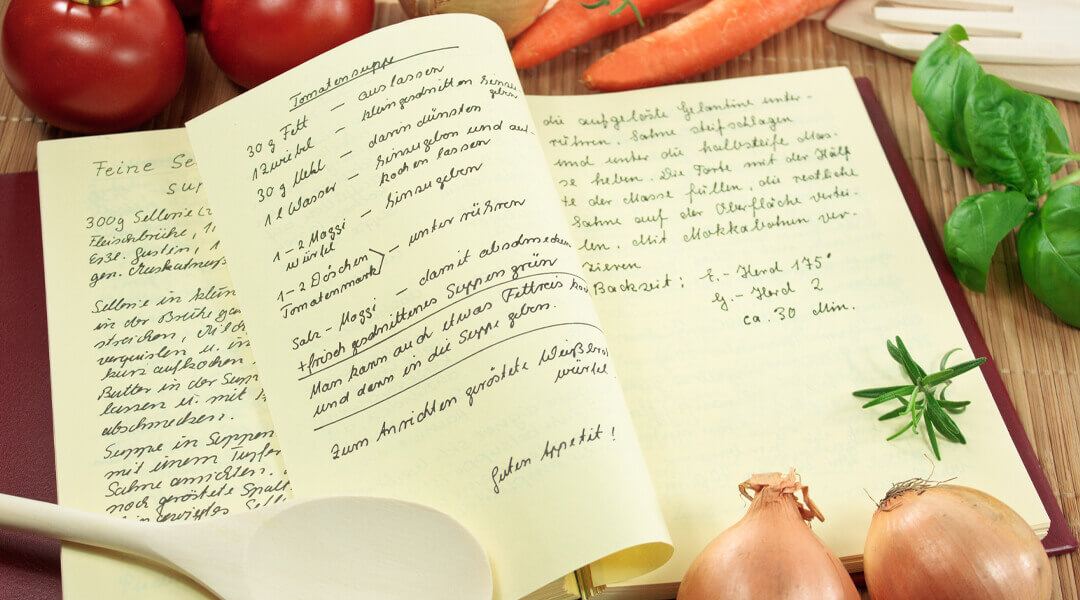 Feine Se
Supp
300g Sellerie
Fleischbrühe, 1
Essl. Gustin, 1
gen. Muskatnuß
Sellerie in
in der Brühe
streichen, Milch
verquirlen u. in
kurz aufkochen.
Butter in der Supp
lassen u. mit
abschmecken.
Suppe in Suppen
mit einem Tupfer
Sahne anrichten.
noch geröstete
Tomatensuppe
30 g Fett — auslassen
1 Zwiebel — kleingeschnitten hinzu-
geben
30 g Mehl — darin dünsten
1 l Wasser — hinzugeben und auf-
kochen lassen
1-2 Maggi — hinzugeben
würfel
1-2 Döschen — unter rühren
Tomatenmark
Salz - Maggi — damit abschmecken
+ frisch geschnittenes Suppengrün
Man kann auch etwas Fettreis
und dann in die Suppe geben.
Zum Anrichten geröstete Weißbrot
würfel
Guten Appetit!
die aufgelöste Gelantine unter-
rühren. Sahne steifschlagen
und unter die halbsteife Mas-
se heben. Die Torte mit der Hälf
te der Masse füllen, die restliche
Sahne auf der Oberfläche vertei-
len. Mit Mokkabohnen ver-
zieren
Backzeit: E.-Herd 175°
G.-Herd 2
ca. 30 Min.